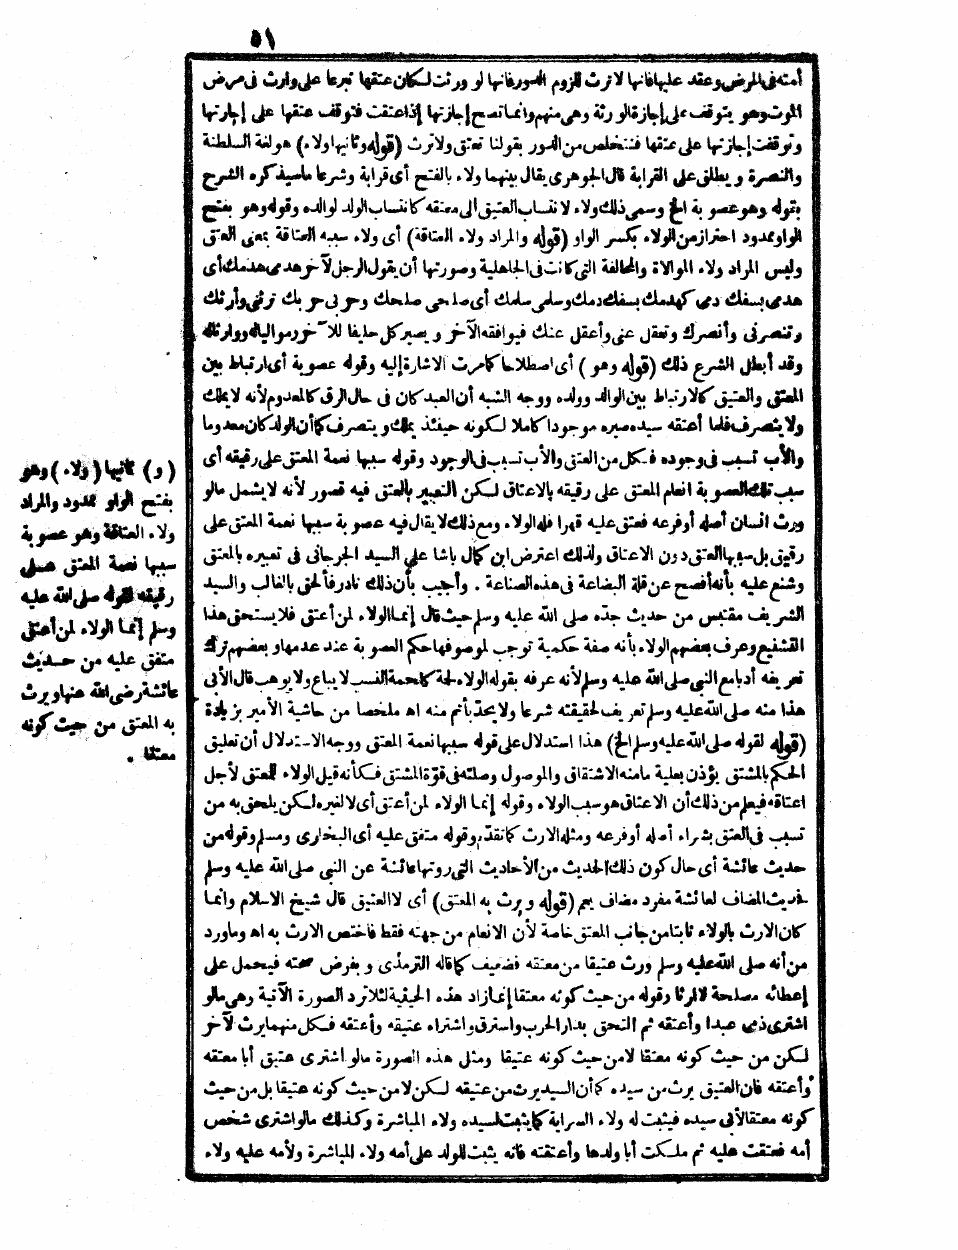 ٥١
أمته فى المرض وعقد عليها فانها لا ترث للزوم الدور فانها لو ورثت لكان عتقها تبرعا على وارث فى مرض
الموت وهو يتوقف على إجازة الورثة وهى منهم وانما تصح إجازتها إذا عتقت فتوقف عتقها على إجازتها
وتوقفت إجازتها على عتقها فتخلص من الدور بقولنا تعتق ولا ترث (قوله وثانيها ولاء) هو لغة السلطنة
والنصرة ويطلق على القرابة قال الجوهرى يقال بينهما ولاء بالفتح أى قرابة وشرعا ما سيذكره الشرح
بقوله وهو عصوبة الخ وسمى ذلك ولاء لانتساب العتيق الى معتقه كانتساب الولد لوالده وقوله وهو بفتح
الواو ممدود احتراز من الولاء بكسر الواو (قوله والمراد ولاء العتاقة) أى ولاء سببه العتاقة بمعنى العتق
وليس المراد ولاء الموالاة والمحالفة التى كانت فى الجاهلية وصورتها أن يقول الرجل لآخر هدمى هدمك أى
هدمى بسفك دمى كهدمك بسفك دمك وسلمى سلمك أى صلحى صلحك وحربى حربك ترثنى وأرثك
وتنصرنى وأنصرك وتعقل عنى وأعقل عنك فيوافقه الآخر ويصير كل حليفا للآخر ومواليا له ووارثا له
وقد أبطل الشرع ذلك (قوله وهو) أى اصطلاحا كما مرت الاشارة إليه وقوله عصوبة أى ارتباط بين
المعتق والعتيق كالارتباط بين الوالد وولده ووجه الشبه أن العبد كان فى حال الرق كالمعدوم لأنه لا يملك
ولا يتصرف فلما أعتقه سيده صيره موجودا كاملا لكونه حينئذ يملك ويتصرف كما أن الولد كان معدوما
والأب تسبب فى وجوده فكل من المعتق والأب تسبب فى الوجود وقوله سببها نعمة المعتق على رقيقه أى
سبب تلك العصوبة انعام المعتق على رقيقه بالاعتاق لكن التعبير بالعتق فيه قصور لأنه لا يشمل ما لو
ورث انسان أصله أو فرعه فعتق عليه قهرا فله الولاء ومع ذلك لا يقال فيه عصوبة سببها نعمة المعتق على
رقيق بل سببها العتق دون الاعتاق ولذلك اعترض ابن كمال باشا على السيد الجرجانى فى تعبيره بالمعتق
وشنع عليه بأنه أفصح عن قلة البضاعة فى هذه الصناعة . وأجيب بأن ذلك نادر فألحق بالغالب والسيد
الشريف مقتبس من حديث جده صلى الله عليه وسلم حيث قال إنما الولاء لمن أعتق فلا يستحق هذا
التشنيع وعرف بعضهم الولاء بأنه صفة حكمية توجب لموصوفها حكم العصوبة عند عدمها وبعضهم ترك
تعريفه أدبا مع النبى صلى الله عليه وسلم لأنه عرفه بقوله الولاء لحمة كلحمة النسب لا يباع ولا يوهب قال الأبى
هذا منه صلى الله عليه وسلم تعريف لحقيقته شرعا ولا يحد بأتم منه اه ملخصا من حاشية الأمير بزيادة
(قوله لقوله صلى الله عليه وسلم الخ) هذا استدلال على قوله سببها نعمة المعتق ووجه الاستدلال أن تعليق
الحكم بالمشتق يؤذن بعلية ما منه الاشتقاق والموصول وصلته فى قوة المشتق فكأنه قيل الولاء للمعتق لأجل
اعتاقه فيعلم من ذلك أن الاعتاق هو سبب الولاء وقوله إنما الولاء لمن أعتق أى لا لغيره لكن يلحق به من
تسبب فى العتق بشراء أصله أو فرعه ومثله الارث كما تقدم وقوله متفق عليه أى البخارى ومسلم وقوله من
حديث عائشة أى حال كون ذلك الحديث من الأحاديث التى روتها عائشة عن النبى صلى الله عليه وسلم
فحديث المضاف لعائشة مفرد مضاف يعم (قوله ويرث به المعتق) أى لا العتيق قال شيخ الاسلام وانما
كان الارث بالولاء ثابتا من جانب المعتق خاصة لأن الانعام من جهته فقط فاختص الارث به اه وما ورد
من أنه صلى الله عليه وسلم ورث عتيقا من معتقه فضعيف كما قاله الترمذى وبفرض صحته فيحمل على
إعطائه مصلحة لا ارثا وقوله من حيث كونه معتقا إنما زاد هذه الحيثية لئلا ترد الصورة الآتية وهى ما لو
اشترى ذمى عبدا وأعتقه ثم التحق بدار الحرب واسترق واشتراه عتيقه وأعتقه فكل منهما يرث لآخر
لكن من حيث كونه معتقا لا من حيث كونه عتيقا ومثل هذه الصورة ما لو اشترى عتيق أبا معتقه
وأعتقه فان العتيق يرث من سيده كما أن السيد يرث من عتيقه لكن لا من حيث كونه عتيقا بل من حيث
كونه معتقا لأبى سيده فيثبت له ولاء السراية كما يثبت لسيده ولاء المباشرة وكذلك ما لو اشترى شخص
أمه فعتقت عليه ثم ملكت أبا ولدها وأعتقته فانه يثبت للولد على أمه ولاء المباشرة ولأمه عليه ولاء
(و) ثانيها (ولاء) وهو
بفتح الواو ممدود والمراد
ولاء العتاقة وهو عصوبة
سببها نعمة المعتق على
رقيقه لقوله صلى الله عليه
وسلم إنما الولاء لمن أعتق
متفق عليه من حديث
عائشة رضى الله عنها ويرث
به المعتق من حيث كونه
معتقا .